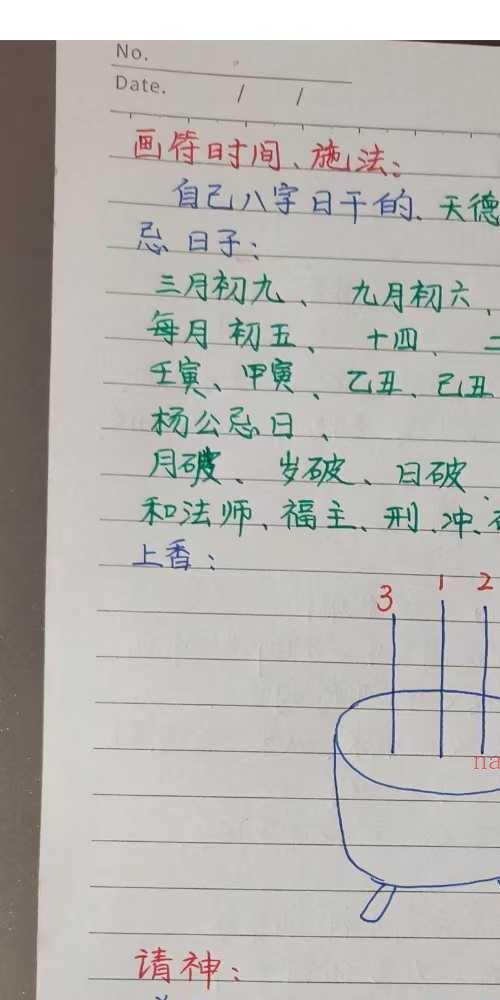 No.
Date. / /
画符时间、施法：
自己八字日干的、天德
忌日子：
三月初九、九月初六、
每月初五、十四、二
壬寅、甲寅、乙丑、己丑
杨公忌日、
月破、岁破、日破、
和法师、福主、刑、冲、
上香：
3 1 2
na
请神：